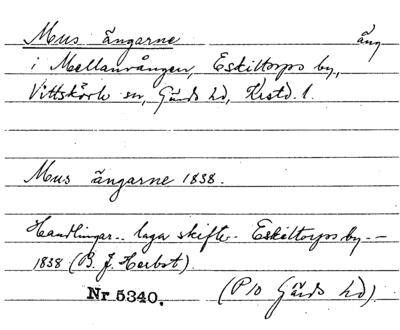 Mus ängarne äng
i Mellanvången, Eskiltorps by,
Vittskövle sn, Gärds hd, Krstd. l.
Mus ängarne 1838.
Handlingar.. laga skifte.. Eskiltorps by.-
1838 (B. J. Herbst)
Nr 5340. (P10 Gärds hd)